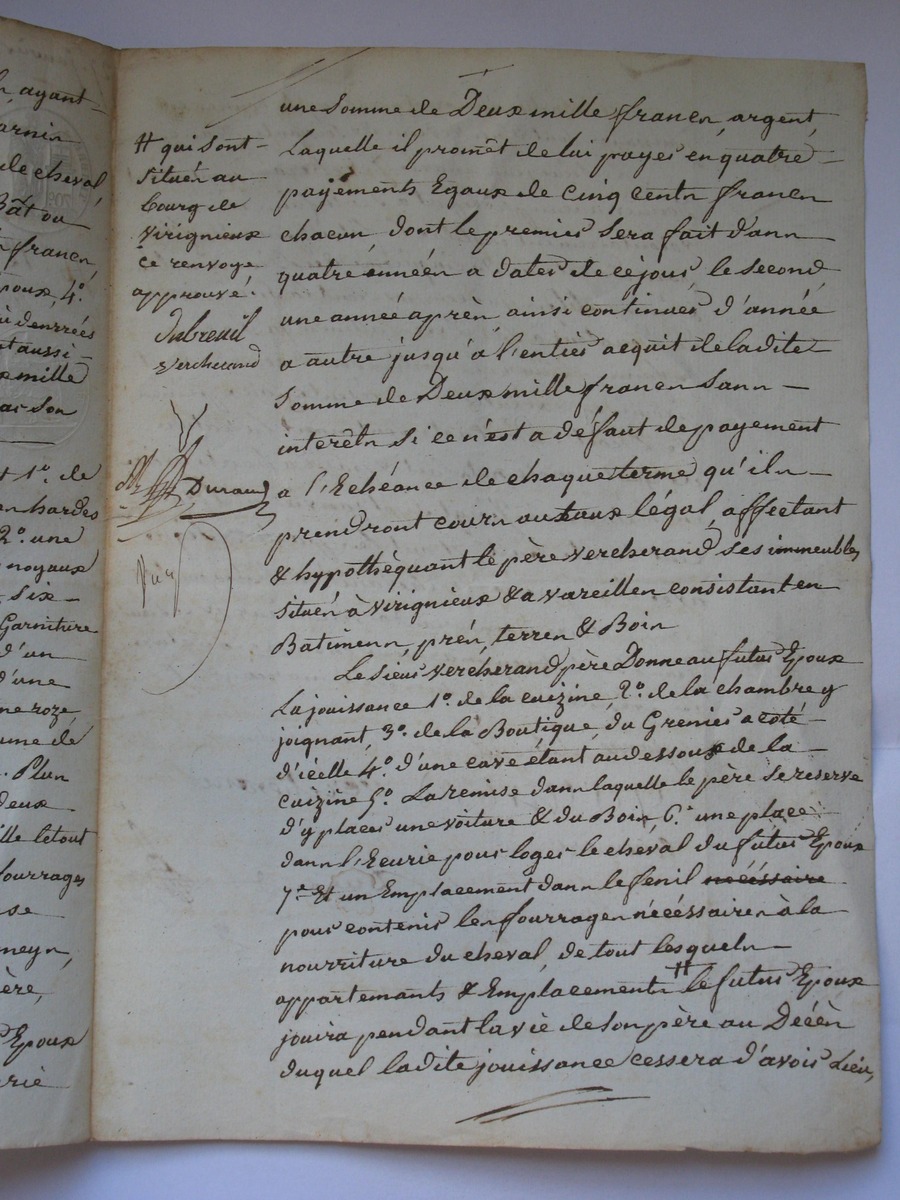 ayant
arnin
de cheval
Bât ou
francs,
poux, 4°.
denrées
t aussi
mille
son
1°. de
hardes
2°. une
noyaux
Six
Garniture
d'un
d'une
roze
une de
Plun
deux
letout
fourrages
se
meyn,
ère,
Epoux
# qui sont
situés au
bourg de
Virignieux
ce renvoye
approuvé.
Dubreuil
Vercherand
Durand
une Somme de Deux mille francs, argent,
Laquelle il promêt de lui payer en quatre
payements Egaux de cinq cents francs
chacun, dont le premier Sera fait dans
quatre années a dater de ce jour, le Second
une année après, ainsi continuer d'année
a autre jusqu'à l'entier acquit de ladite
Somme de Deux mille francs Sans
interêts Si ce n'est a défaut de payement
a l'Echéance de chaque terme qu'ils
prendront cours au taux légal, affectant
& hypothéquant le père Vercherand, ses immeubles
Situés à Virignieux & a Vareilles consistant en
Batimens, prés, terres & Bois
Le Sieur Vercherand père Donne au futur Epoux
La jouissance 1°. de la cuizine, 2°. de la chambre y
joignant, 3°. de la Boutique, du Grenier a coté
d'icelle 4°. d'une cave étant au dessous de la
cuizine 5°. La remise dans laquelle le père Se reserve
d'y placer une voiture & du Bois, 6.° une place
dans l'Ecurie pour loger le cheval du futur Epoux
7°. Et un Emplacement dans le fenil nécéssaire
pour contenir les fourrages nécéssaires à la
nourriture du cheval, de tout lesquels
appartemants & Emplacements # le futur Epoux
jouira pendant la vie de Son père au Décès
duquel ladite jouissance cessera d'avoir Lieu,